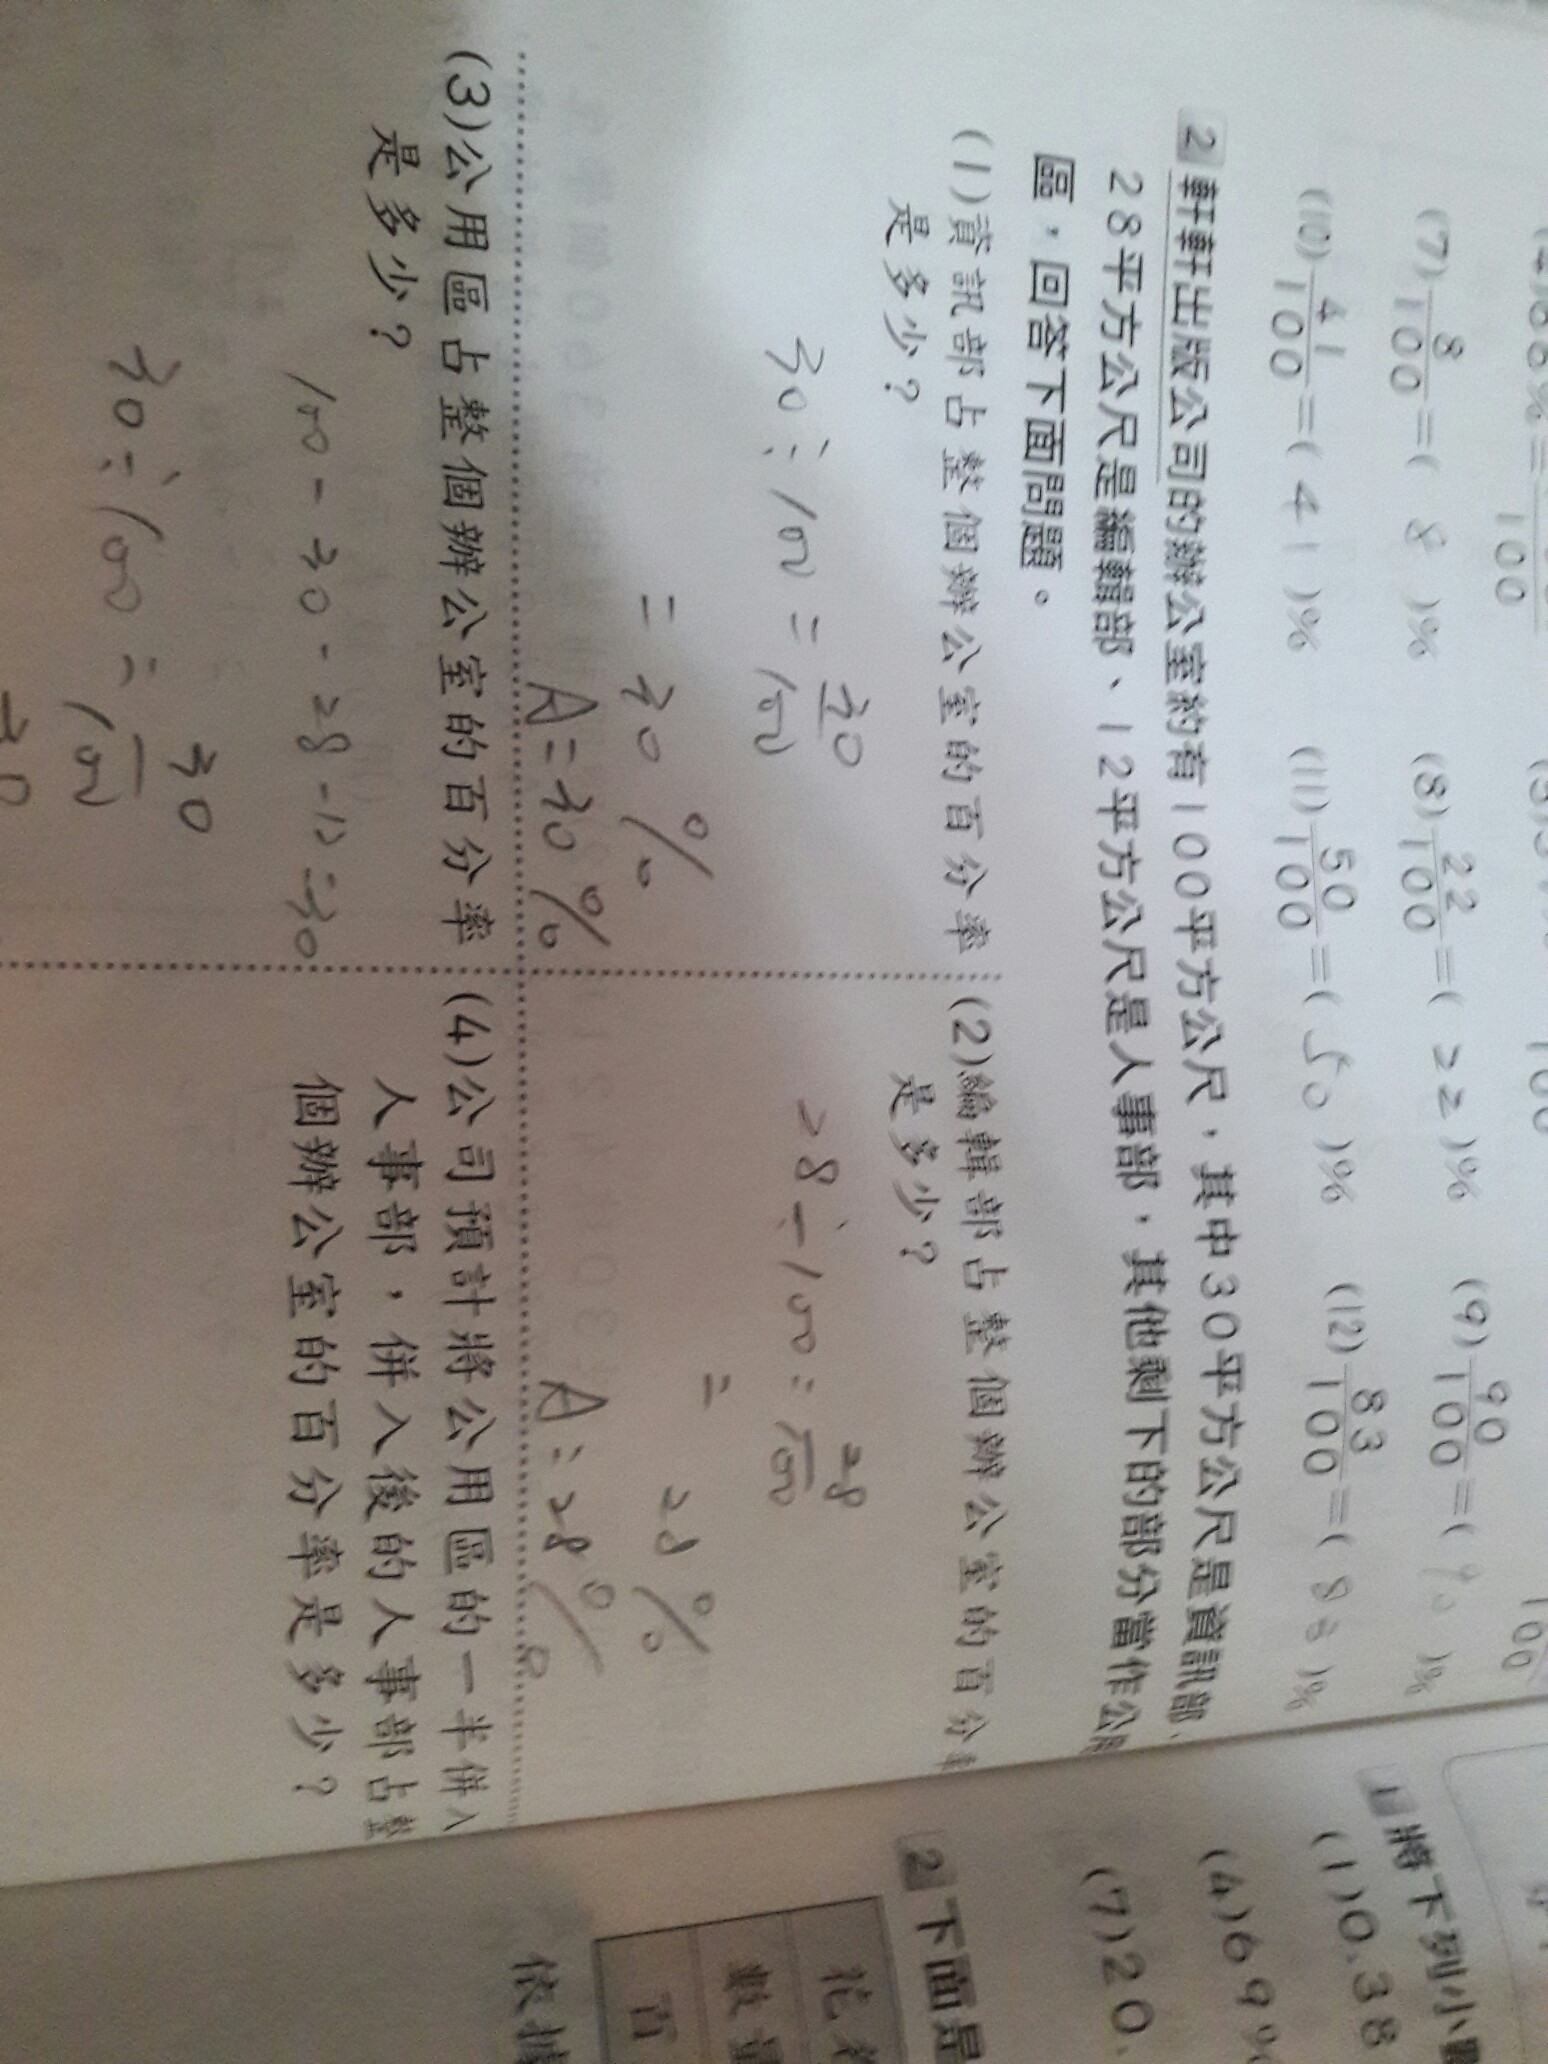 100
(7) 8/100 = ( 8 )%
(8) 22/100 = ( 22 )%
(9) 90/100 = ( 90 )%
(10) 41/100 = ( 41 )%
(11) 50/100 = ( 50 )%
(12) 83/100 = ( 83 )%
2 軒軒出版公司的辦公室約有100平方公尺，其中30平方公尺是資訊部、
28平方公尺是編輯部、12平方公尺是人事部，其他剩下的部分當作公用
區，回答下面問題。
(1)資訊部占整個辦公室的百分率
是多少？
30÷100=30/100
=30%
A=30%
(2)編輯部占整個辦公室的百分率
是多少？
28÷100=28/100
= 28%
A:28%
(3)公用區占整個辦公室的百分率
是多少？
100-30-28-12=30
30÷100=30/100
30
(4)公司預計將公用區的一半併入
人事部，併入後的人事部占整
個辦公室的百分率是多少？
1 將下列小
(1)0.38
(4)69%
(7)20.
2 下面是
花
數量
百
依據